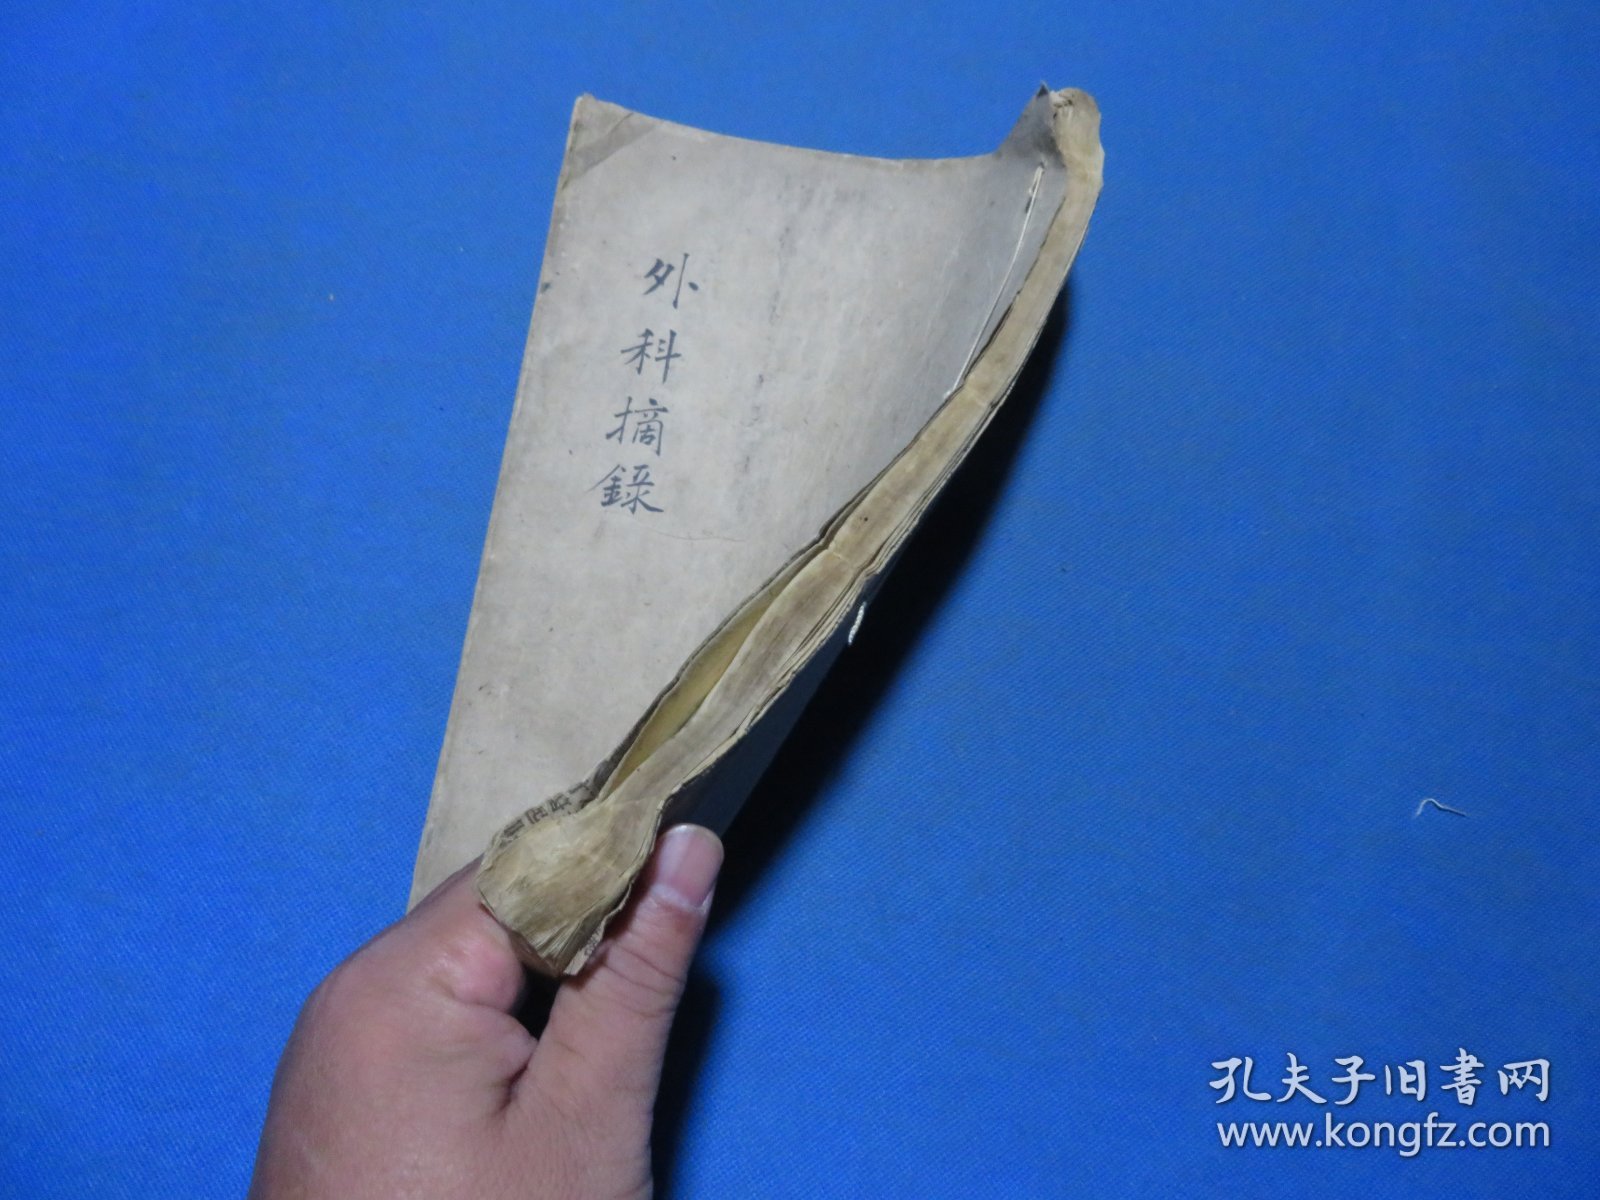 外科摘錄
孔夫子旧書网
www.kongfz.com